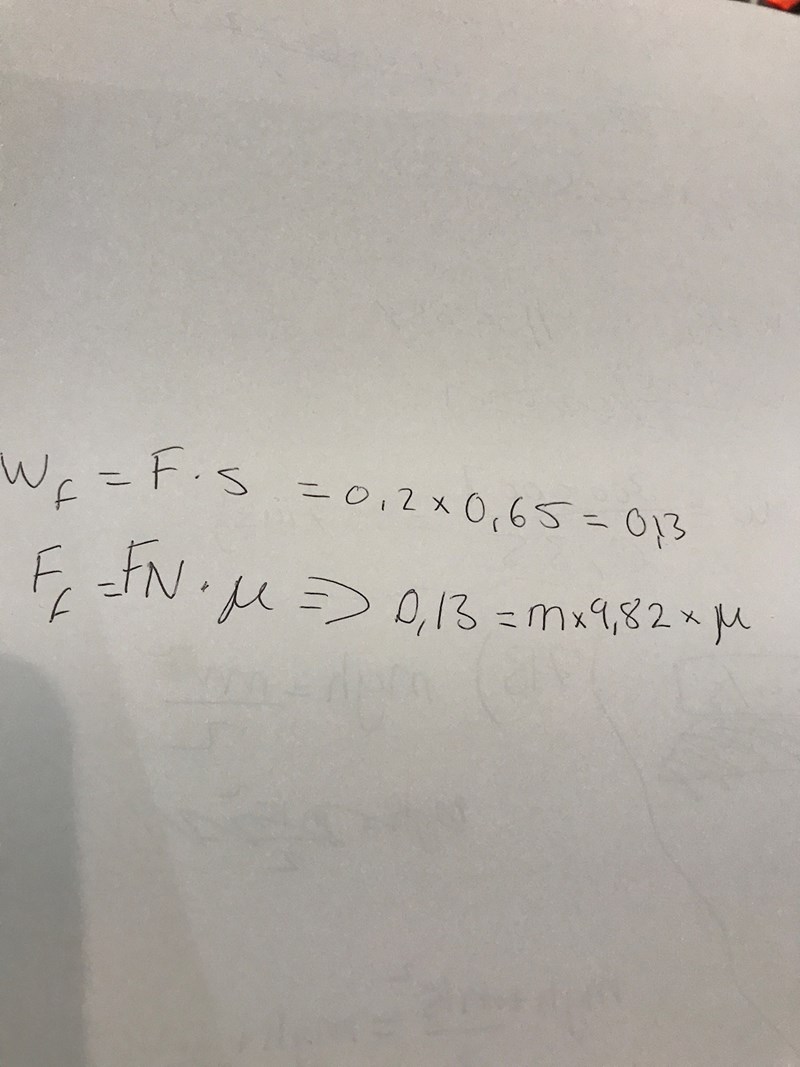 W_f = F · s = 0,2 × 0,65 = 0,13
F_f = FN · μ => 0,13 = m × 9,82 × μ